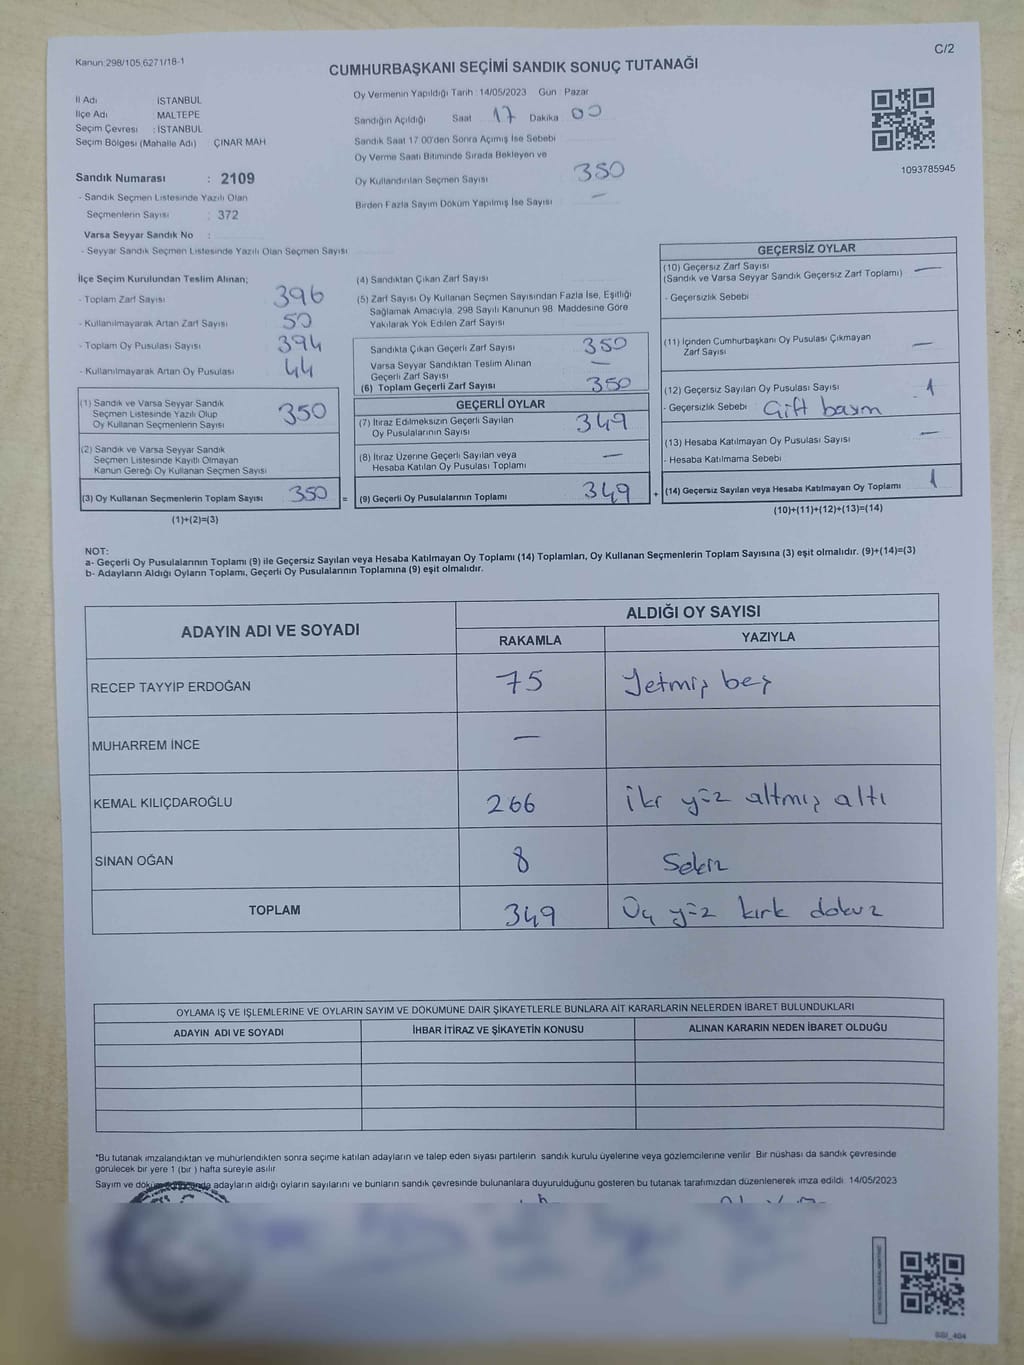 Kanun:298/105,6271/18-1
C/2
CUMHURBAŞKANI SEÇİMİ SANDIK SONUÇ TUTANAĞI
İl Adı İSTANBUL
İlçe Adı MALTEPE
Seçim Çevresi : İSTANBUL
Seçim Bölgesi (Mahalle Adı) ÇINAR MAH
Sandık Numarası : 2109
- Sandık Seçmen Listesinde Yazılı Olan
Seçmenlerin Sayısı : 372
Varsa Seyyar Sandık No :
- Seyyar Sandık Seçmen Listesinde Yazılı Olan Seçmen Sayısı
Oy Vermenin Yapıldığı Tarih : 14/05/2023 Gün : Pazar
Sandığın Açıldığı Saat 17 Dakika 00
Sandık Saat 17:00'den Sonra Açılmış İse Sebebi
Oy Verme Saati Bitiminde Sırada Bekleyen ve
Oy Kullandırılan Seçmen Sayısı 350
Birden Fazla Sayım Döküm Yapılmış İse Sayısı —
1093785945
İlçe Seçim Kurulundan Teslim Alınan;
- Toplam Zarf Sayısı 396
- Kullanılmayarak Artan Zarf Sayısı 50
- Toplam Oy Pusulası Sayısı 394
- Kullanılmayarak Artan Oy Pusulası 44
(1) Sandık ve Varsa Seyyar Sandık
Seçmen Listesinde Yazılı Olup
Oy Kullanan Seçmenlerin Sayısı 350
(2) Sandık ve Varsa Seyyar Sandık
Seçmen Listesinde Kayıtlı Olmayan
Kanun Gereği Oy Kullanan Seçmen Sayısı
(3) Oy Kullanan Seçmenlerin Toplam Sayısı 350 =
(1)+(2)=(3)
(4) Sandıktan Çıkan Zarf Sayısı
(5) Zarf Sayısı Oy Kullanan Seçmen Sayısından Fazla İse, Eşitliği
Sağlamak Amacıyla, 298 Sayılı Kanunun 98. Maddesine Göre
Yakılarak Yok Edilen Zarf Sayısı
Sandıkta Çıkan Geçerli Zarf Sayısı 350
Varsa Seyyar Sandıktan Teslim Alınan
Geçerli Zarf Sayısı —
(6) Toplam Geçerli Zarf Sayısı 350
GEÇERLİ OYLAR
(7) İtiraz Edilmeksizin Geçerli Sayılan
Oy Pusulalarının Sayısı 349
(8) İtiraz Üzerine Geçerli Sayılan veya
Hesaba Katılan Oy Pusulası Toplamı —
(9) Geçerli Oy Pusulalarının Toplamı 349 +
GEÇERSİZ OYLAR
(10) Geçersiz Zarf Sayısı
(Sandık ve Varsa Seyyar Sandık Geçersiz Zarf Toplamı) —
- Geçersizlik Sebebi
(11) İçinden Cumhurbaşkanı Oy Pusulası Çıkmayan
Zarf Sayısı —
(12) Geçersiz Sayılan Oy Pusulası Sayısı 1
- Geçersizlik Sebebi Çift basım
(13) Hesaba Katılmayan Oy Pusulası Sayısı —
- Hesaba Katılmama Sebebi
(14) Geçersiz Sayılan veya Hesaba Katılmayan Oy Toplamı 1
(10)+(11)+(12)+(13)=(14)
NOT:
a- Geçerli Oy Pusulalarının Toplamı (9) ile Geçersiz Sayılan veya Hesaba Katılmayan Oy Toplamı (14) Toplamları, Oy Kullanan Seçmenlerin Toplam Sayısına (3) eşit olmalıdır. (9)+(14)=(3)
b- Adayların Aldığı Oyların Toplamı, Geçerli Oy Pusulalarının Toplamına (9) eşit olmalıdır.
ADAYIN ADI VE SOYADI ALDIĞI OY SAYISI
RAKAMLA YAZIYLA
RECEP TAYYİP ERDOĞAN 75 Yetmiş beş
MUHARREM İNCE —
KEMAL KILIÇDAROĞLU 266 iki yüz altmış altı
SİNAN OĞAN 8 Sekiz
TOPLAM 349 Üç yüz kırk dokuz
OYLAMA İŞ VE İŞLEMLERİNE VE OYLARIN SAYIM VE DÖKÜMÜNE DAİR ŞİKAYETLERLE BUNLARA AİT KARARLARIN NELERDEN İBARET BULUNDUKLARI
ADAYIN ADI VE SOYADI İHBAR İTİRAZ VE ŞİKAYETİN KONUSU ALINAN KARARIN NEDEN İBARET OLDUĞU
*Bu tutanak imzalandıktan ve mühürlendikten sonra seçime katılan adayların ve talep eden siyasi partilerin sandık kurulu üyelerine veya gözlemcilerine verilir. Bir nüshası da sandık çevresinde
görülecek bir yere 1 (bir ) hafta süreyle asılır.
Sayım ve adayların aldığı oyların sayılarını ve bunların sandık çevresinde bulunanlara duyurulduğunu gösteren bu tutanak tarafımızdan düzenlenerek imza edildi. 14/05/2023